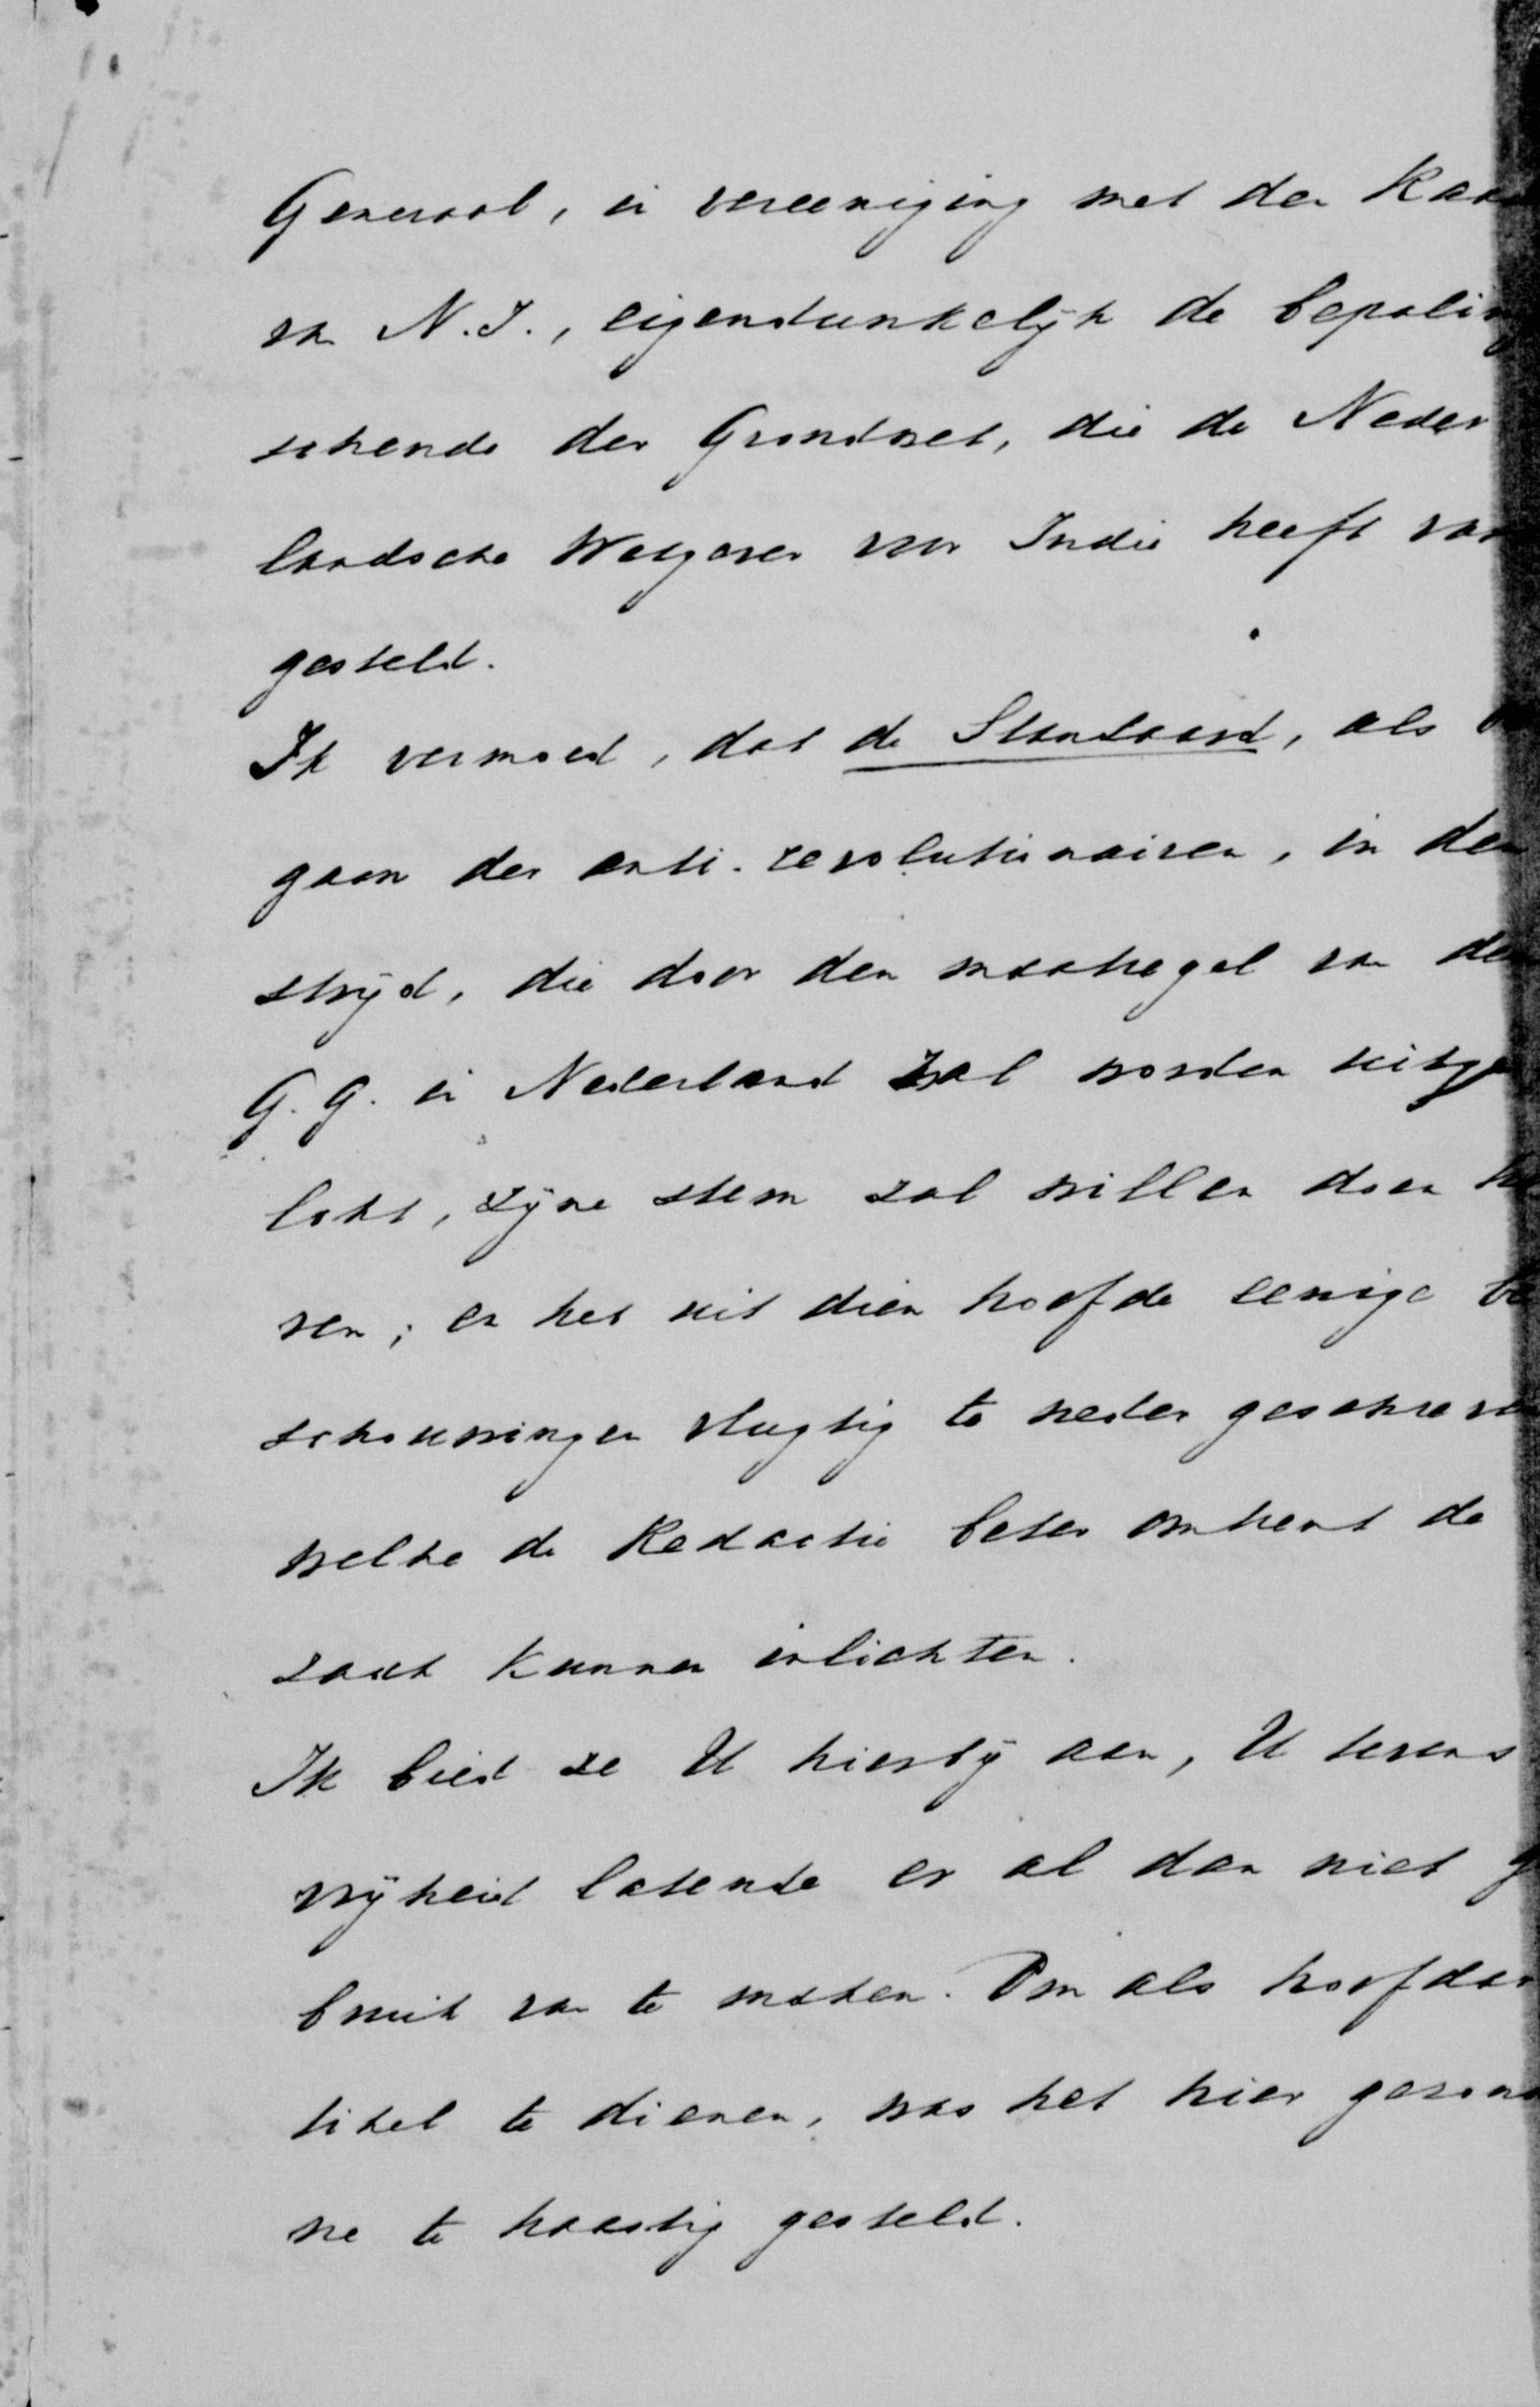 Generaal, in vereeniging met den Raad
van N.I., eigendunkelijk de bepaling
schende der Grondwet, die de Neder
landsche Wetgever voor Indië heeft vast
gesteld.
Ik vermoed, dat de Standaard, als or
gaan der anti-revolutionairen, in den
strijd, die door den maatregel van den
G.G. in Nederland zal worden uitge
lokt, zijne stem zal willen doen hoo
ren; en heb uit dien hoofde eenige be
schouwingen vlugtig te neder geschreven
welke de Redactie beter omtrent de
zaak kunnen inlichten.
Ik bied ze U hierbij aan, U tevens
vrijheid latende er al dan niet ge
bruik van te maken. Om als hoofdar
tikel te dienen, was het hier gezon
ne te haastig gesteld.